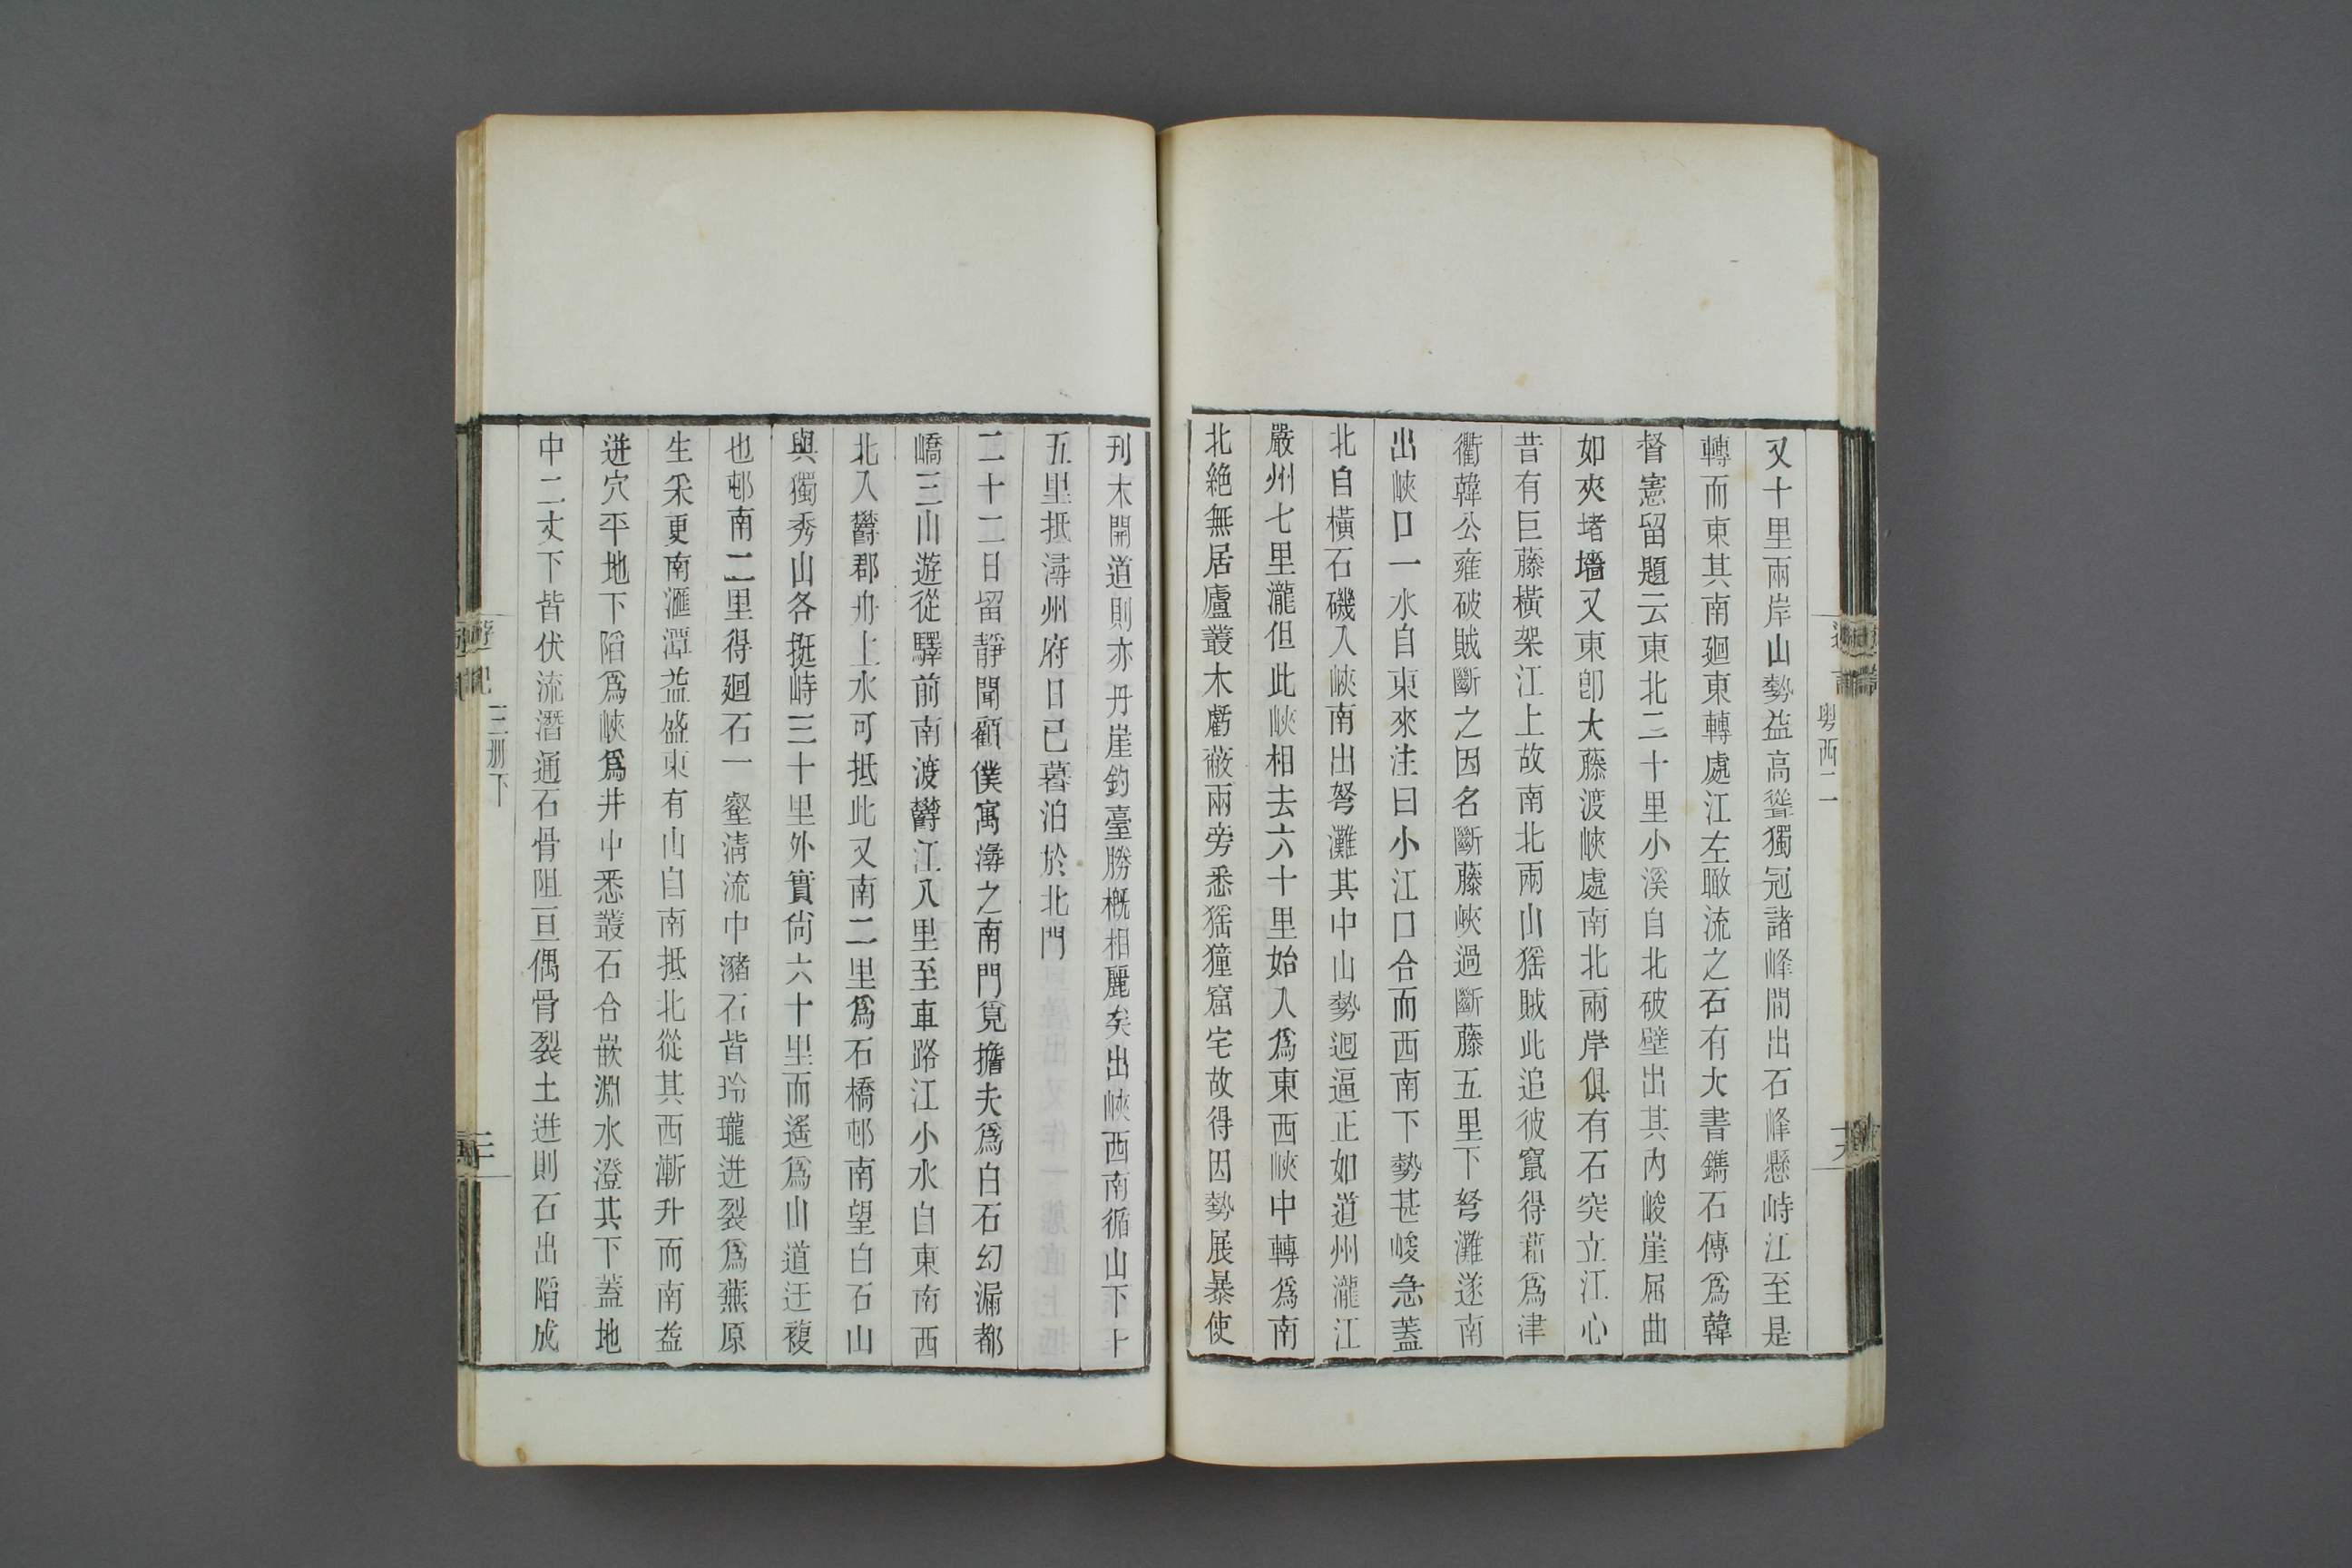 粵西二
又十里兩岸山勢益高聳獨冠諸峰間出石峰懸峙江至是
轉而東其南廻東轉處江左瞰流之石有大書鐫石傳爲韓
督憲留題云東北二十里小溪自北破壁出其內峻崖屈曲
如夾堵墻又東卽大藤渡峽處南北兩岸俱有石突立江心
昔有巨藤橫架江上故南北兩山猺賊此追彼竄得藉爲津
衢韓公雍破賊斷之因名斷藤峽過斷藤五里下弩灘遂南
出峽口一水自東來注曰小江口合而西南下勢甚峻急蓋
北自橫石磯入峽南出弩灘其中山勢迴逼正如道州瀧江
嚴州七里瀧但此峽相去六十里始入爲東西峽中轉爲南
北絶無居廬叢木虧蔽兩旁悉猺獞窟宅故得因勢展暴使
刋木開道則亦丹崖釣臺勝槪相麗矣出峽西南循山下上
五里抵潯州府日已暮泊於北門
二十二日留靜聞顧僕寓潯之南門覓擔夫爲白石幻漏都
嶠三山遊從驛前南渡鬱江八里至車路江小水自東南西
北入鬱郡舟上水可抵此又南二里爲石橋邨南望白石山
與獨秀山各挺峙三十里外實尙六十里而遙爲山道迂複
也邨南二里得廻石一壑淸流中瀦石皆玲瓏迸裂爲蕪原
生采更南滙潭益盛東有山自南抵北從其西漸升而南益
迸穴平地下䧟爲峽爲井中悉叢石合嵌淵水澄其下蓋地
中二丈下皆伏流潛通石骨阻亘偶骨裂土迸則石出䧟成
遊記
三册下